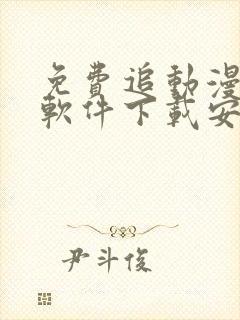 免費追動漫
軟件下載安
尹斗俊